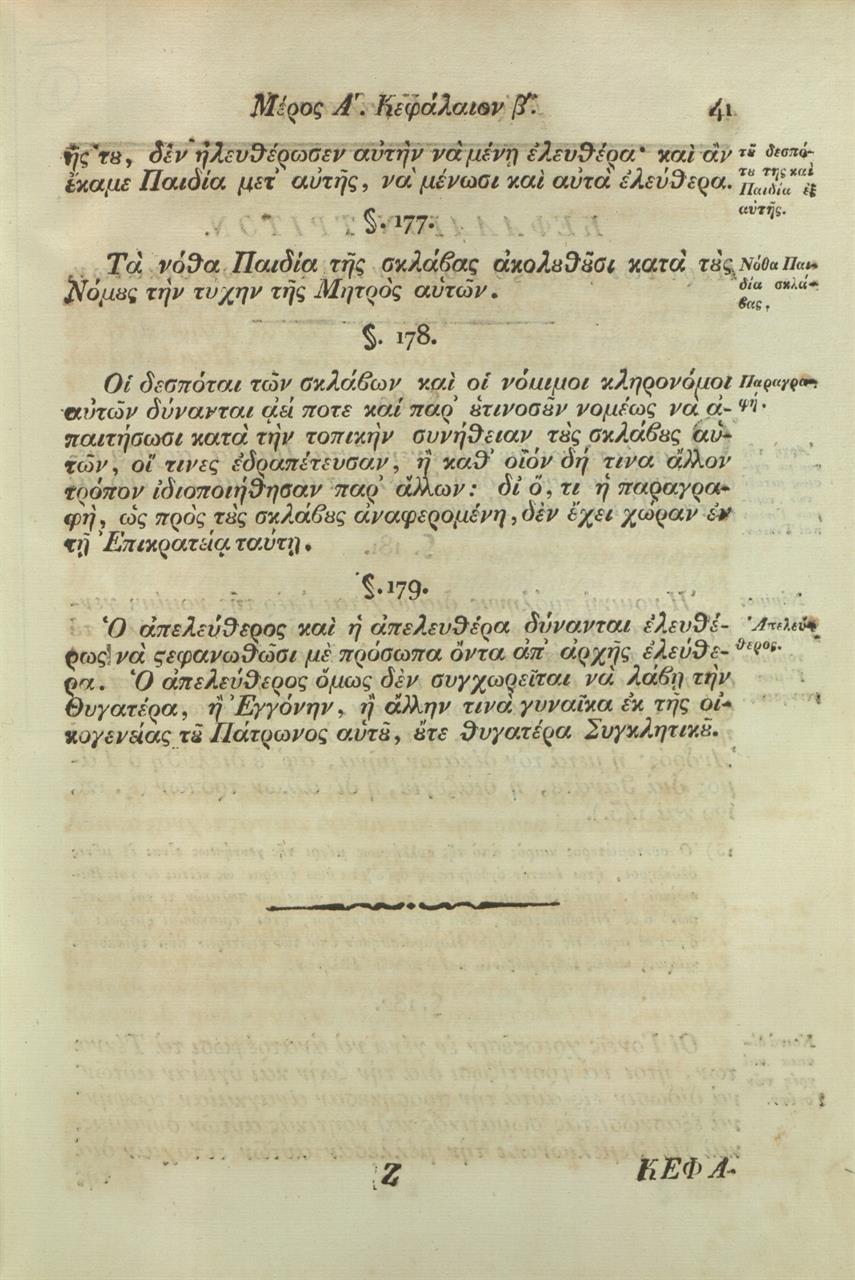 Μέρος Αʹ. Κεφάλαιον βʹ. 41
ῆς τȣ, δὲν ἠλευθέρωσεν αὐτὴν νὰ μένῃ ἐλευθέρα· καὶ ἂν
ἔκαμε Παιδία μετ' αὐτῆς, νὰ μένωσι καὶ αὐτὰ ἐλεύθερα.
τȣ͂ δεσπό-
τȣ της καὶ
Παιδία ἐξ
αὐτῆς.
§. 177.
Τὰ νόθα Παιδία τῆς σκλάβας ἀκολȣθȣ͂σι κατὰ τȣ̀ς
Νόμȣς τὴν τύχην τῆς Μητρὸς αὑτῶν.
Νόθα Παι-
δία σκλά-
βας.
§. 178.
Οἱ δεσπόται τῶν σκλάβων καὶ οἱ νόμιμοι κληρονόμοι
αὐτῶν δύνανται ἀεί ποτε καὶ παρ' ȣ̔τινοσȣ͂ν νομέως νὰ ἀ-
παιτήσωσι κατὰ τὴν τοπικὴν συνήθειαν τȣ̀ς σκλάβȣς αὑ-
τῶν, οἵ τινες ἐδραπέτευσαν, ἢ καθ' οἷόν δή τινα ἄλλον
τρόπον ἰδιοποιήθησαν παρ' ἄλλων: δι' ὅ, τι ἡ παραγρα-
φὴ, ὡς πρὸς τȣ̀ς σκλάβȣς ἀναφερομένη, δὲν ἔχει χώραν ἐν
τῇ Ἐπικρατείᾳ ταύτῃ.
Παραγρα-
φή.
§. 179.
Ὁ ἀπελεύθερος καὶ ἡ ἀπελευθέρα δύνανται ἐλευθέ-
ρως νὰ ϛεφανωθῶσι μὲ πρόσωπα ὄντα ἀπ' ἀρχῆς ἐλεύθε-
ρα. Ὁ ἀπελεύθερος ὅμως δὲν συγχωρεῖται νὰ λάβῃ τὴν
Θυγατέρα, ἢ Ἐγγόνην, ἢ ἄλλην τινὰ γυναῖκα ἐκ τῆς οἰ-
κογενείας τȣ͂ Πάτρωνος αὑτȣ͂, ȣ̓́τε θυγατέρα Συγκλητικȣ͂.
Ἀπελεύ-
θερος.
Ζ
ΚΕΦΑ-